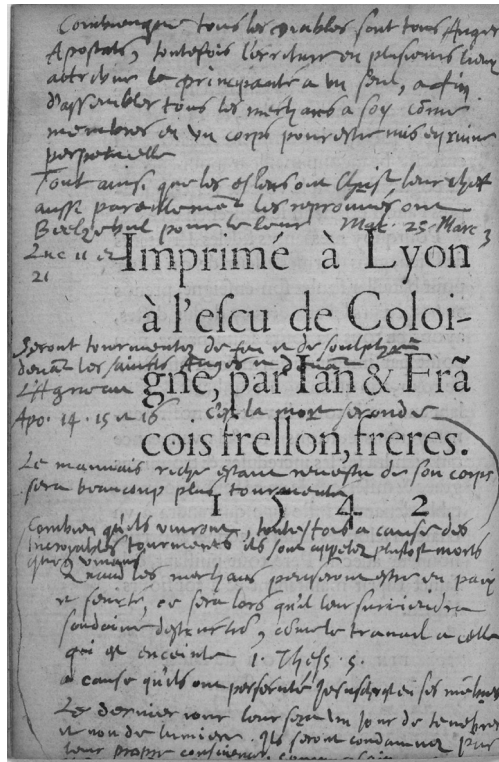 tous les diables sont tous Anges
Apostats, toutefois l'escriture en plusieurs lieux
attribue la principauté a un seul, a fin
d'assembler tous les meschans a soy cõme
membres en un corps pour estre mis en ruine
perpetuelle
Tout ainsi que les esleus ont Christ leur chef
aussi pareillement les reprouués ont
Beelzebul pour le leur Mat. 25. Marc 3
Luc 11 et
21
Imprimé à Lyon
à l'escu de Coloi-
Seront tourmentez de feu et de soulphre
deuãt les saincts Anges et deuãt
gne, par Ian & Frã
L'Agneau
Apo. 14. 15 et 16 c'est la mort seconde
cois frellon, freres.
Le mauuais riche estant reuestu de son corps
sera beaucoup plus tourmenté
1 5 4 2
Combien qu'ils viuront, toutesfois a cause des
incroyables tourments ils sont appelez plustost morts
que viuans
Quand les meschans penseront estre en paix
et seurté, ce sera lors qu'il leur suruiendra
soudaine destructiõ, cõme le trauail a celle
qui est enceinte 1. Thess. 5.
a cause qu'ils ont persecuté Jesuschrist en ses mẽbres
Le dernier iour leur sera un jour de tenebres
et non de lumiere. Ils seront condamnez par
leur propre conscience